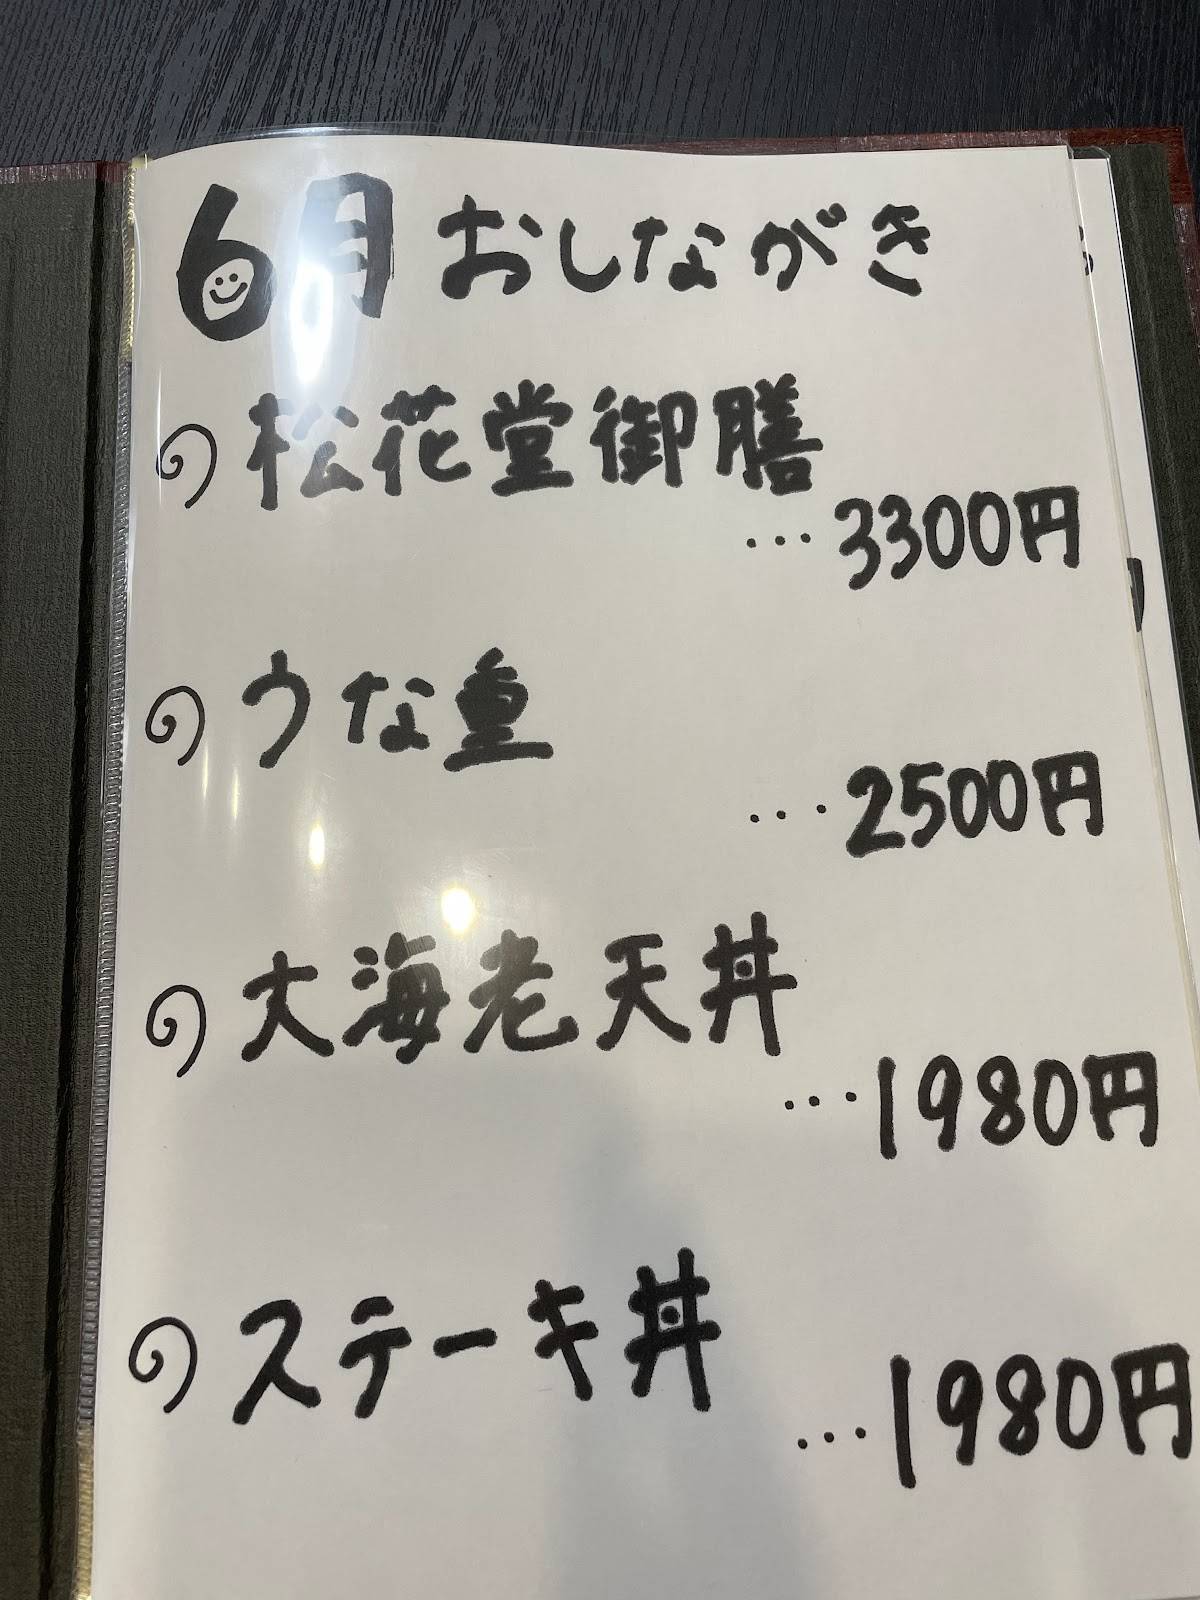 6月 おしながき
松花堂御膳
…3300円
うな重
…2500円
大海老天丼
…1980円
ステーキ丼
…1980円